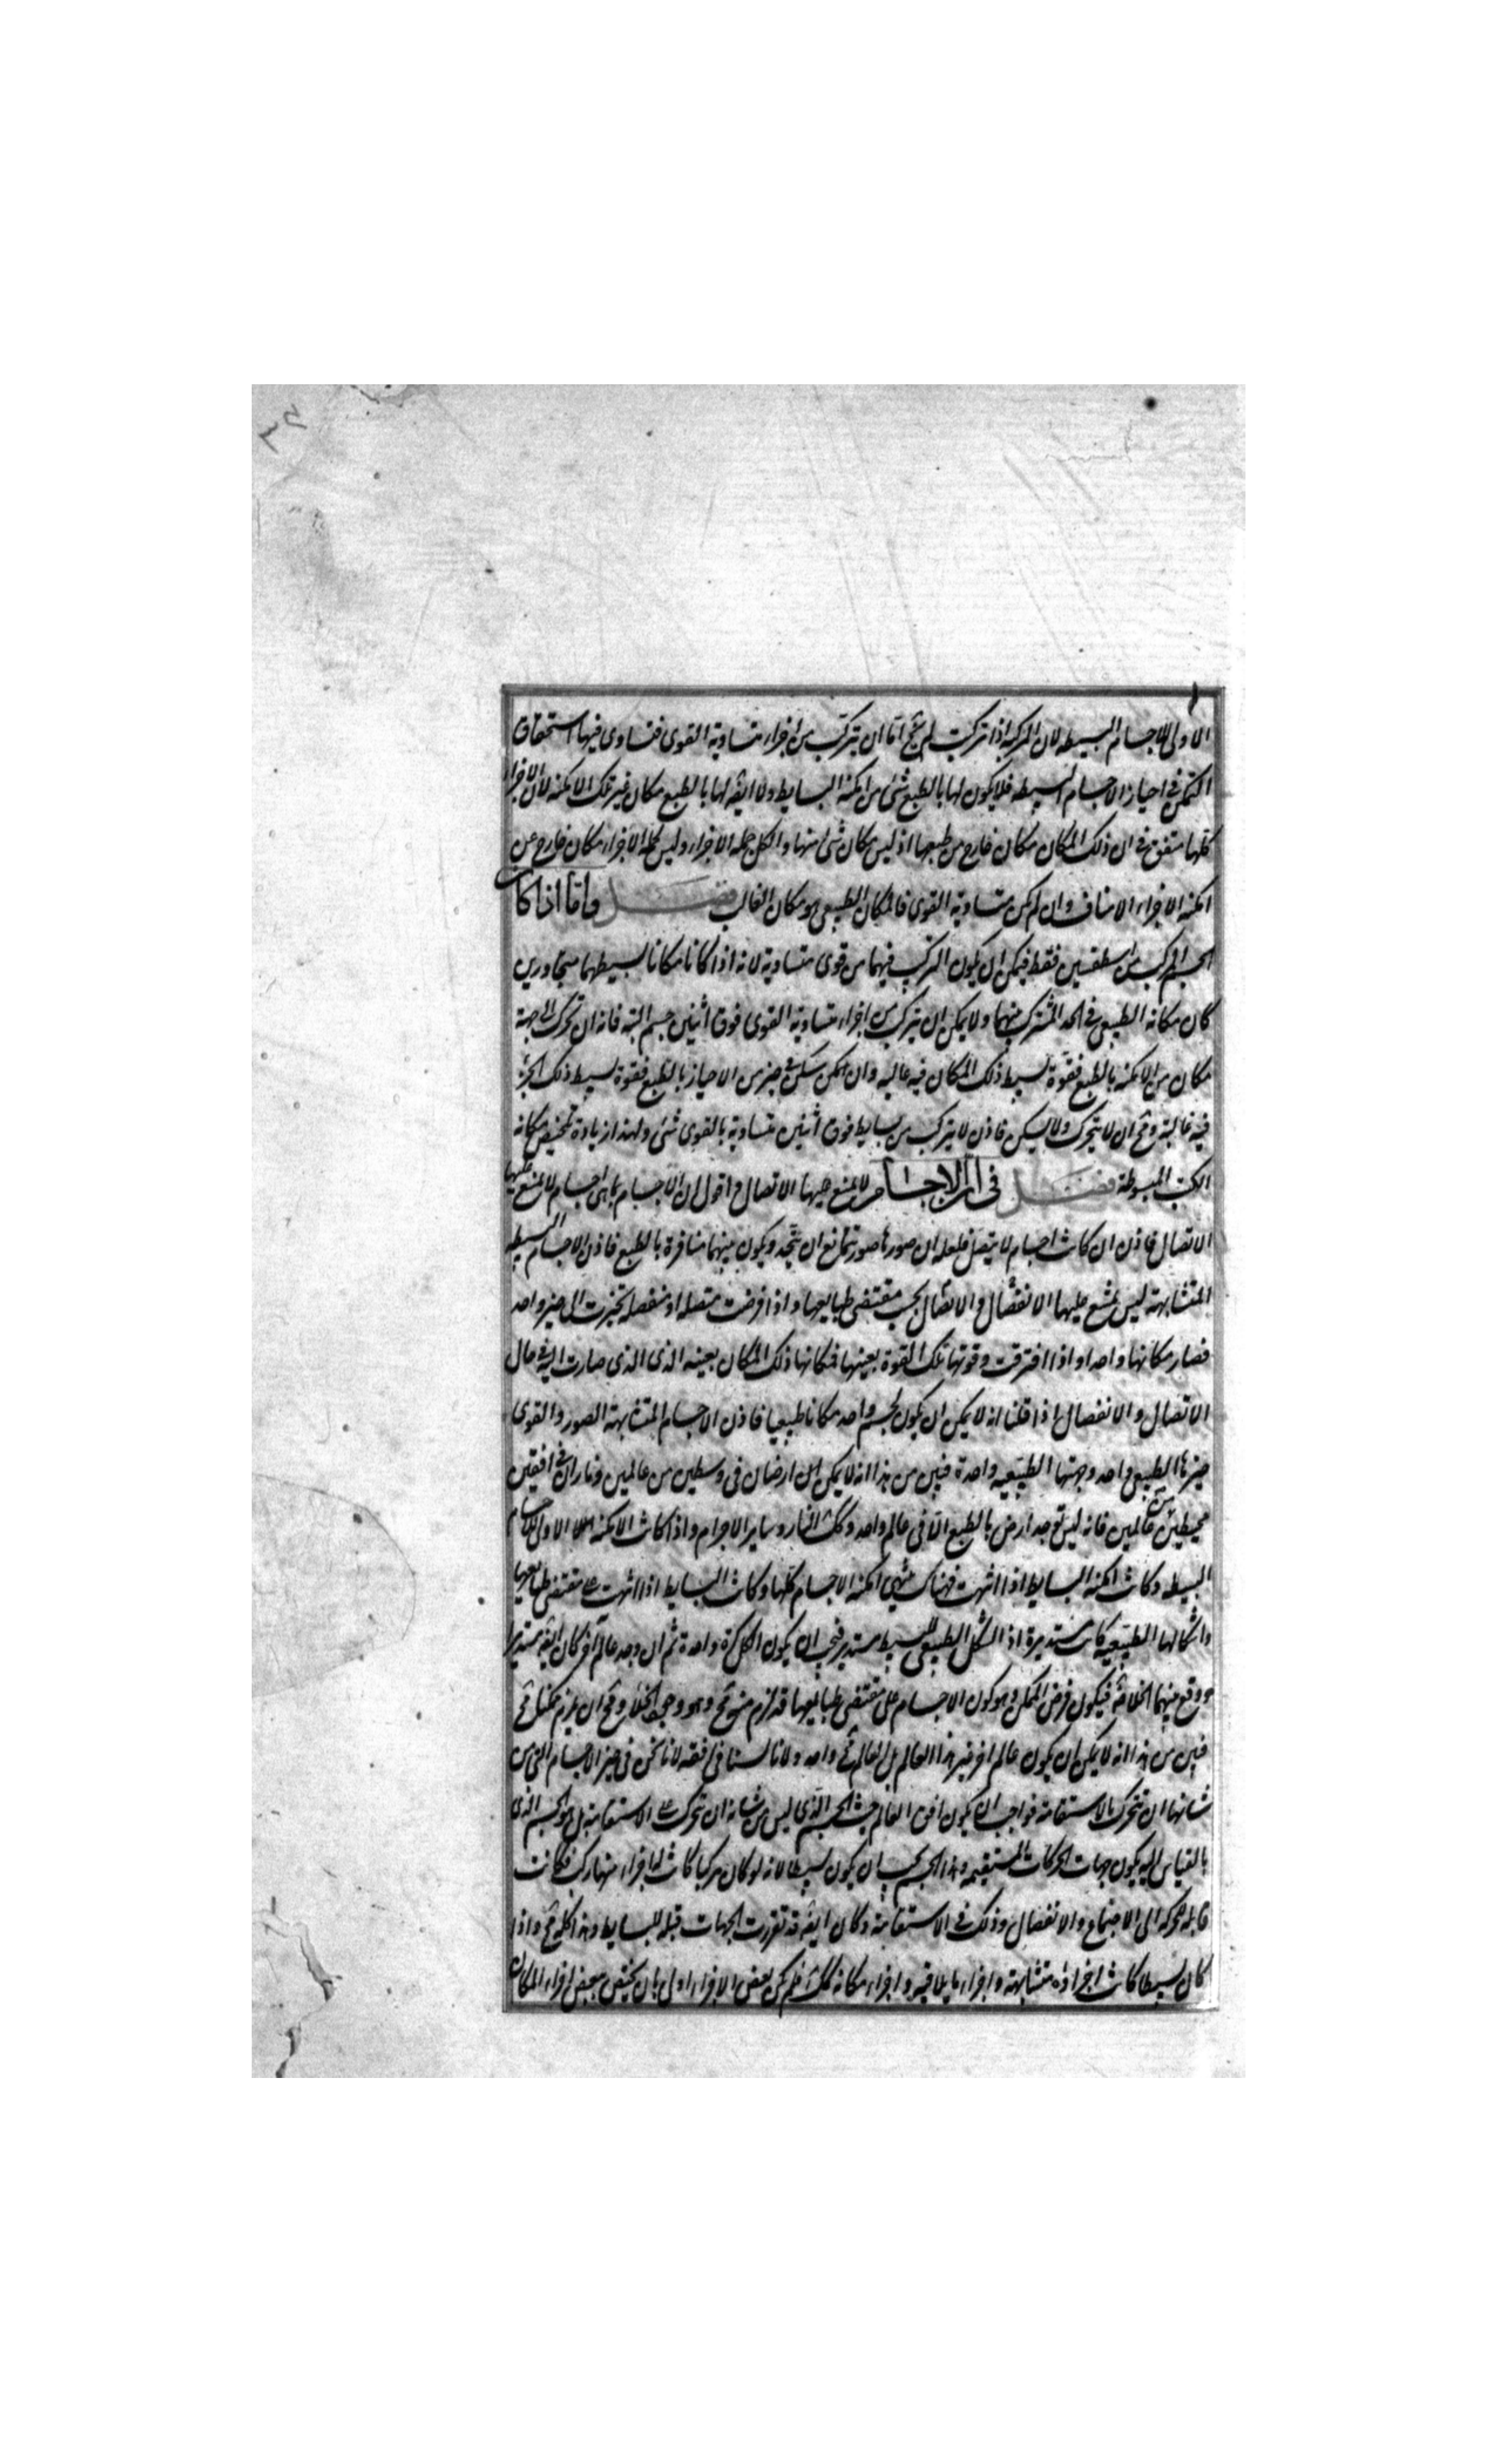 الاولى للاجسام البسيطه لان المركبة اذا تركبت لم يخ اما ان يتركب من اجزاء متساوية القوى فتساوى فيها استحقاق
التمكن فى احياز الاجسام البسيطه فلا يكون لها بالطبع شئ من امكنة البسايط ولا ايضا لها بالطبع مكان غير تلك الامكنه لان الاجزاء
كلها متفق فى ان ذلك المكان مكان خارج من طبعها اذ ليس مكان شئ منها والكل جمله الاجزاء وليس لجملة الاجزاء مكان خارج عن
امكنة الاجزاء الا مناف وان لم يكن متساوية القوى فالمكان الطبيعى هو مكان الغالب فصل واما اذا كان
الجسم المركب من اسطقسين فقط فيمكن ان يكون التركيب فيهما من قوى متساوية لانه اذا كانا مكانا بسيطهما متجاورين
كان مكانه الطبيعى فى الحد المشترك بينهما ولا يمكن ان يتركب من اجزاء متساوية القوى فوق اثنين جسم البته فانه ان تحرك الى جهة
مكان من الامكنه بالطبع فقوة بسيط ذلك المكان فيه غالبه وان امكن سكن فى حيز من الاحياز بالطبع فقوة بسيط ذلك الحيز
فيه غالبة ومح ان لا يتحرك ولا يسكن فاذن لا يتركب من بسايط فوق اثنين متساوية بالقوى شئ ولهذا زيادة تلخيص مكانه
الكتب المبسوطة فصل فى ان الاجسام لا يمنع عليها الاتصال واقول ان الاجسام بما هى اجسام لا يمتنع عليها
الاتصال فاذن ان كانت اجسام لا يتصل فلعله ان صورها صور تمانع ان تتحد ويكون بينهما منافرة بالطبع فاذن الاجسام البسيطه
المتشابهة ليس يمتنع عليها الانفصال والاتصال بحسب مقتضى طبايعها واذا فرضت متصله او منفصله تحيزت الى حيز واحد
فصار مكانها واحدا واذا افترقت وقوتها تلك القوة بعينها فمكانها ذلك المكان بعينه الذى الذى صارت اليه فى حال
الاتصال والانفصال اذا قلنا انه لا يمكن ان يكون لجسم واحد مكانا طبيعيا فاذن الاجسام المتشابهة الصور والقوى
حيزها الطبيعى واحد وجهتها الطبيعيه واحدة فبين من هذا انه لا يمكن ان ارضان فى وسطين من عالمين وناران فى افقين
محيطين من عالمين فانه ليس توجد ارض بالطبع الا فى عالم واحد وكك النار وساير الاجرام واذا كانت الامكنه الاولى للاجسام
البسيطه وكانت امكنة البسايط اذا انتهت فهناك ينتهى امكنة الاجسام كلها وكانت البسايط اذا انتهت على مقتضى طبايعها
واشكالها الطبيعيه كانت مستديرة اذ الشكل الطبيعى للبسيط مستدير فيجب ان يكون الكل كرة واحدة ثم ان وجد عالم آخر كان ايضا مستديرا
ووقع بينهما الخلاء فيكون فرض الممكن وهو كون الاجسام على مقتضى طبايعها قد لزم منه مح وهو وجود الخلاء ومح ان يلزم ممكنا مح
فبين من هذا انه لا يمكن ان يكون عالم اخر غير هذا العالم بل العالم واحد ولانا لسنا فى افقه لانا نحن فى حيز الاجسام التى من
شانها ان تتحرك بالاستقامة فواجب ان يكون افق العالم حيث الجسم الذى ليس من شانه ان تتحرك على الاستقامة بل هو الجسم الذى
بالقياس اليه يكون جهات الحركات المستقيمه وهذا الجسم يجب ان يكون بسيطا لانه لو كان مركبا كانت له اجزاء منها ركب فكانت
قابله لحركه الى الاجتماع والانفصال وذلك فى الاستقامة وكان ايضا قد تقررت الجهات قبله للبسايط وهذا كله مح واذا
كان بسيطا كانت اجزاؤه متشابهة واجزاء ما يلاقيه واجزاء مكانه كك فلم يكن بعض الاجزاء اولى بان يختص ببعض اجزاء المكان